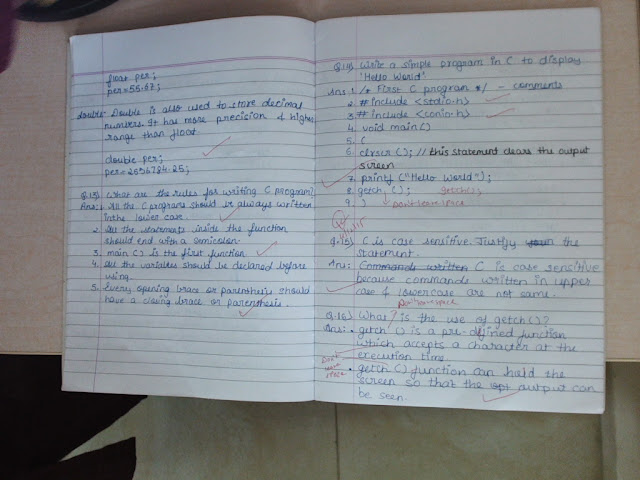 float per;
per=55.67;
double- Double is also used to store decimal
numbers. It has more precision & higher
range than float.
double per;
per=2536784.25;
Q.13) What are the rules for writing C program?
Ans: 1. All the C programs should be always written
in the lower case.
2. All the statements inside the function
should end with a semicolon.
3. main() is the first function
4. All the variables should be declared before
using.
5. Every opening brace or parenthesis should
have a closing brace or parenthesis.
Q.14) Write a simple program in C to display
'Hello World'
Ans: 1. /* First C program */ - comments
2. # include <stdio.h>
3. # include <conio.h>
4. void main()
5. {
6. clrscr(); // this statement clears the output
screen
7. printf ("Hello World");
8. getch, (); getch();
9. } Don't leave space
Q.15) C is case sensitive. Justify the
statement.
Ans: Commands written C is case sensitive
because commands written in upper
case & lowercase are not same.
Don't leave space
Q.16) What is the use of getch()?
Ans: • getch () is a pre-defined function
which accepts a character at the
execution time.
Don't leave space • getch () function can hold the
screen so that the opt output can
be seen.